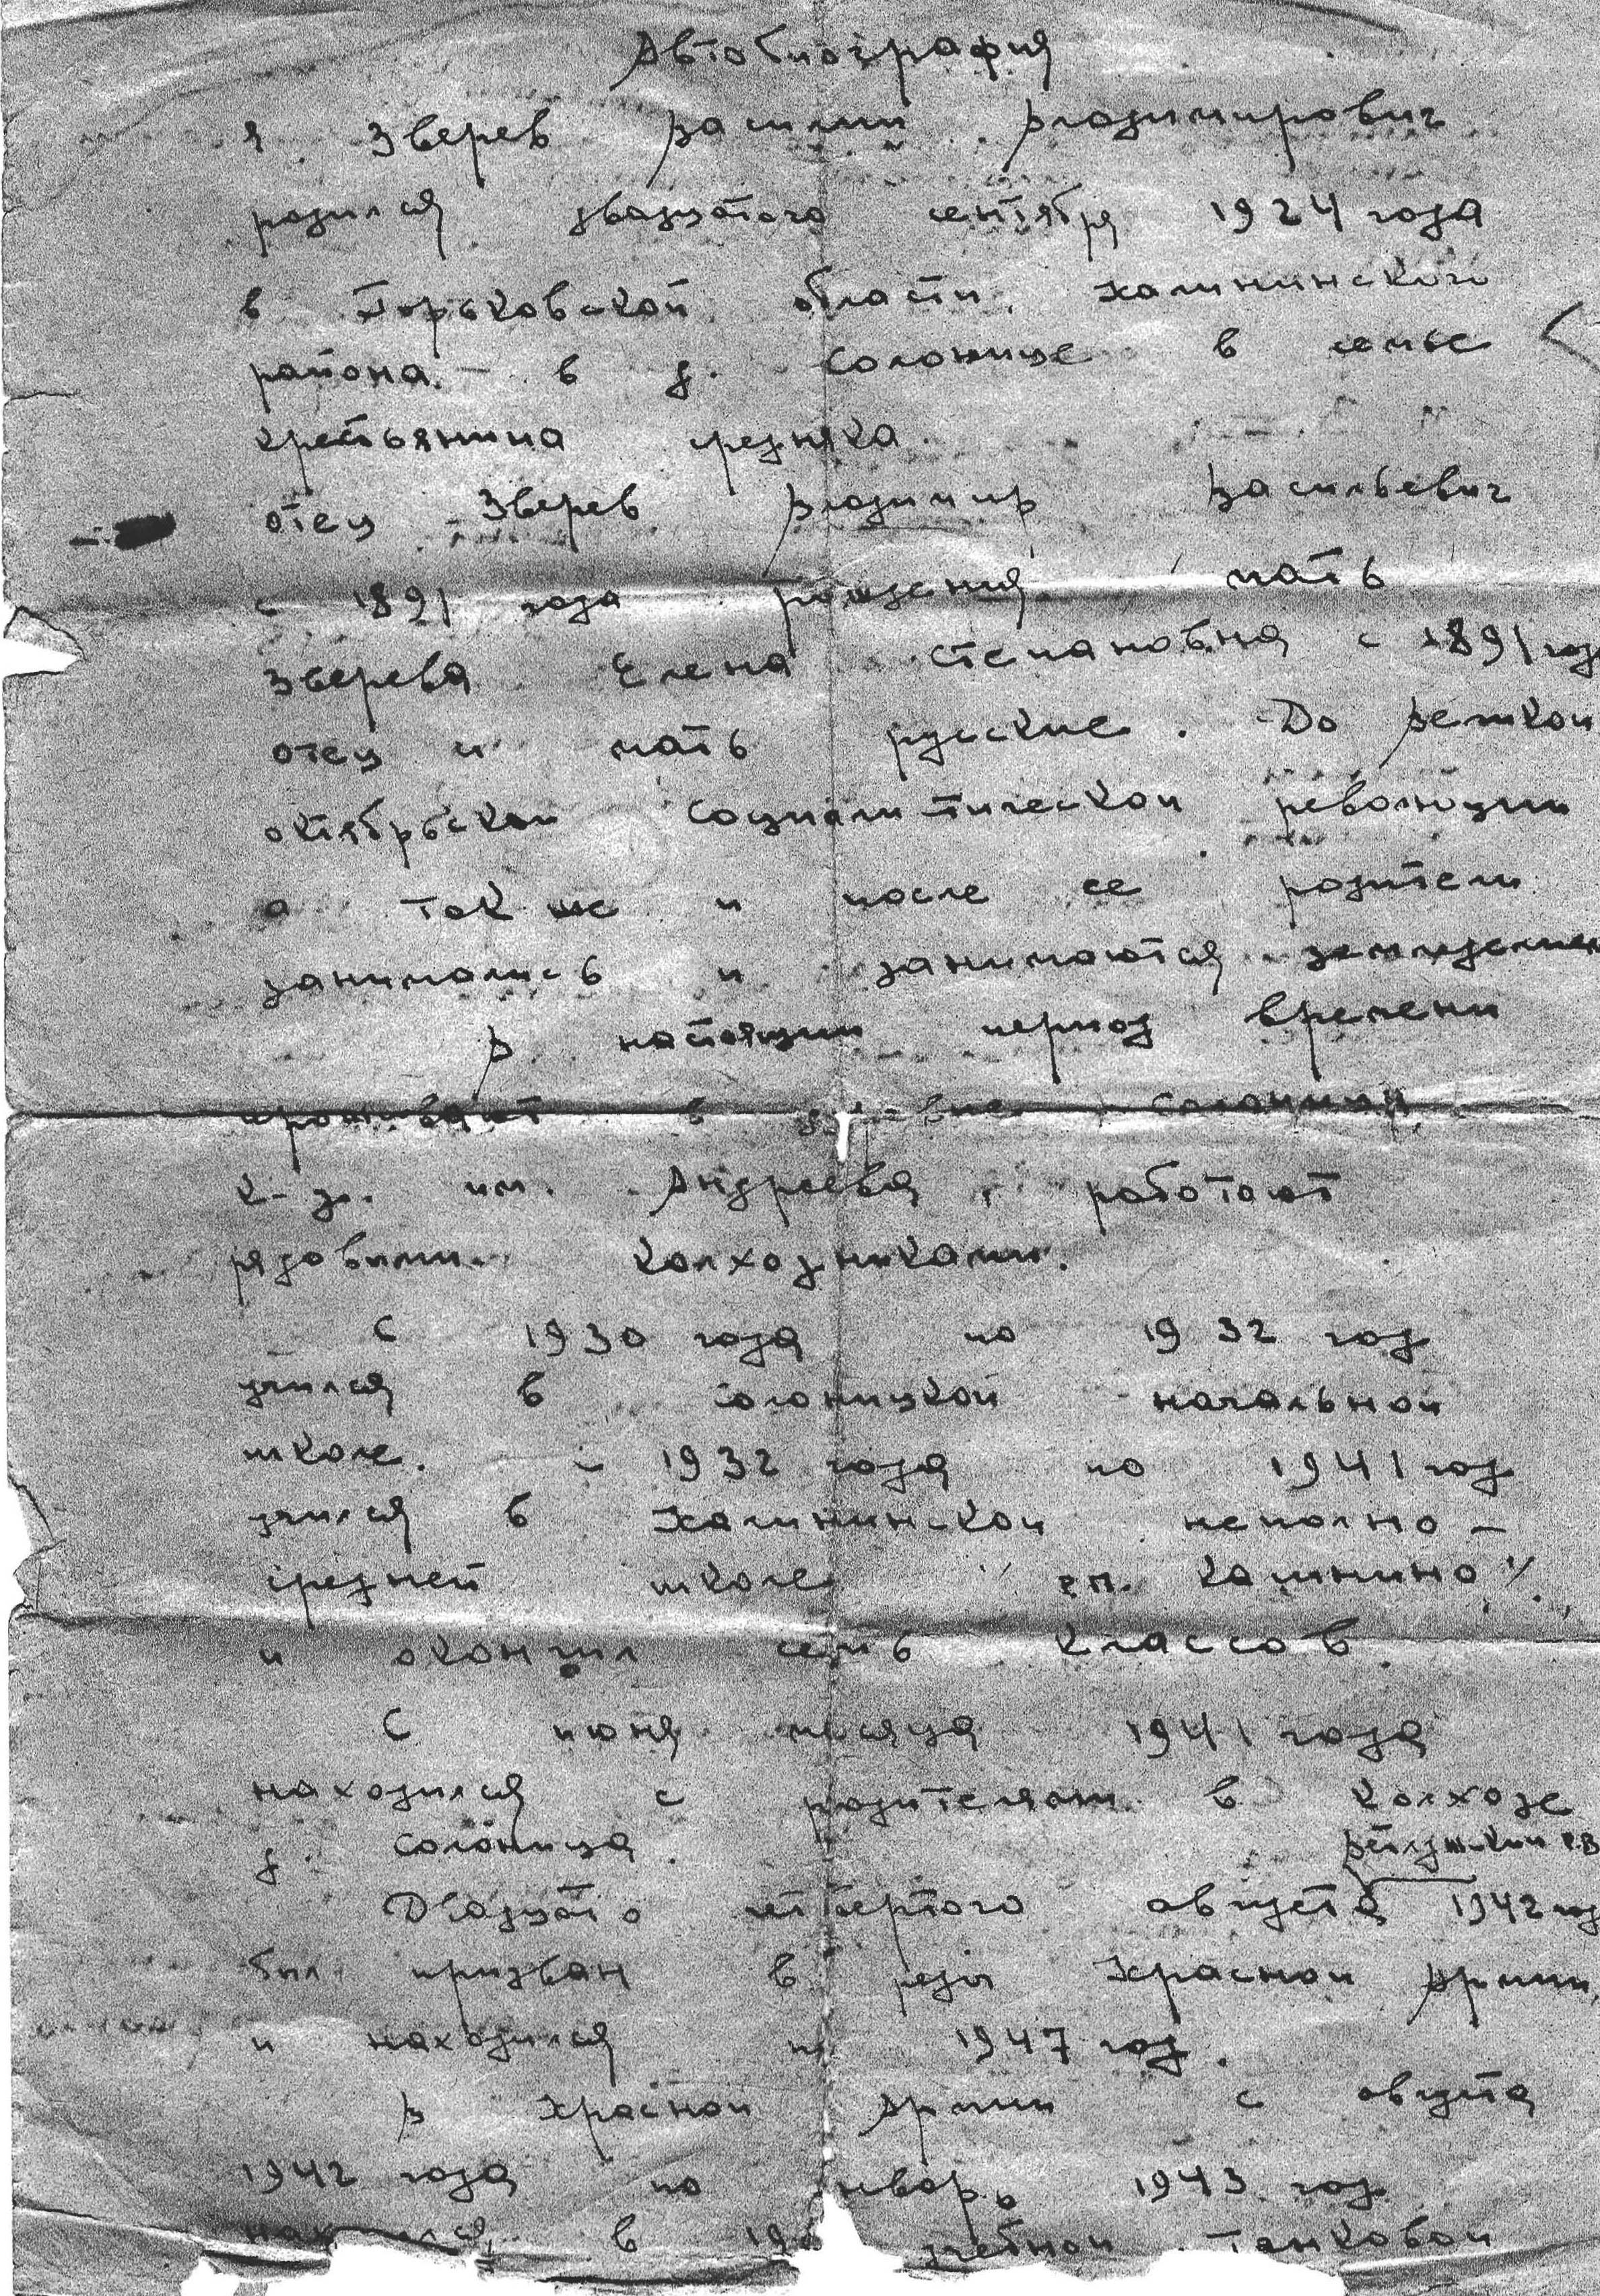 Автобиография
я Зверев Василий Владимирович
родился двадцатого сентября 1924 года
в Горьковской области Калининского
района. в д. Солонице в семье
крестьянина средняка.
отец Зверев Владимир Васильевич
с 1891 года рождения мать
Зверева Елена Степановна с 1891 года
отец и мать русские. До Великой
октябрьской социалистической революции
а так же и после ее родители
занимались и занимаются земледелием
В настоящий период времени
проживают в Солоница
к-з. им. Андреева, работают
рядовыми колхозниками.
С 1930 года по 1932 год
учился в Солоницкой начальной
школе. с 1932 года по 1941 год
учился в Калининской неполно-
средней школе "сп. Калинино".
и окончил семь классов
С июня месяца 1941 года
находился с родителями в колхозе
д. Солоница.
Ветлужским Р.В
Двадцато четвертого августа 1942 год
был призван в ряды Красной Армии,
и находился по 1947 год.
В Красной Армии с августа
1942 года по январь 1943 год
находился в учебной танковой